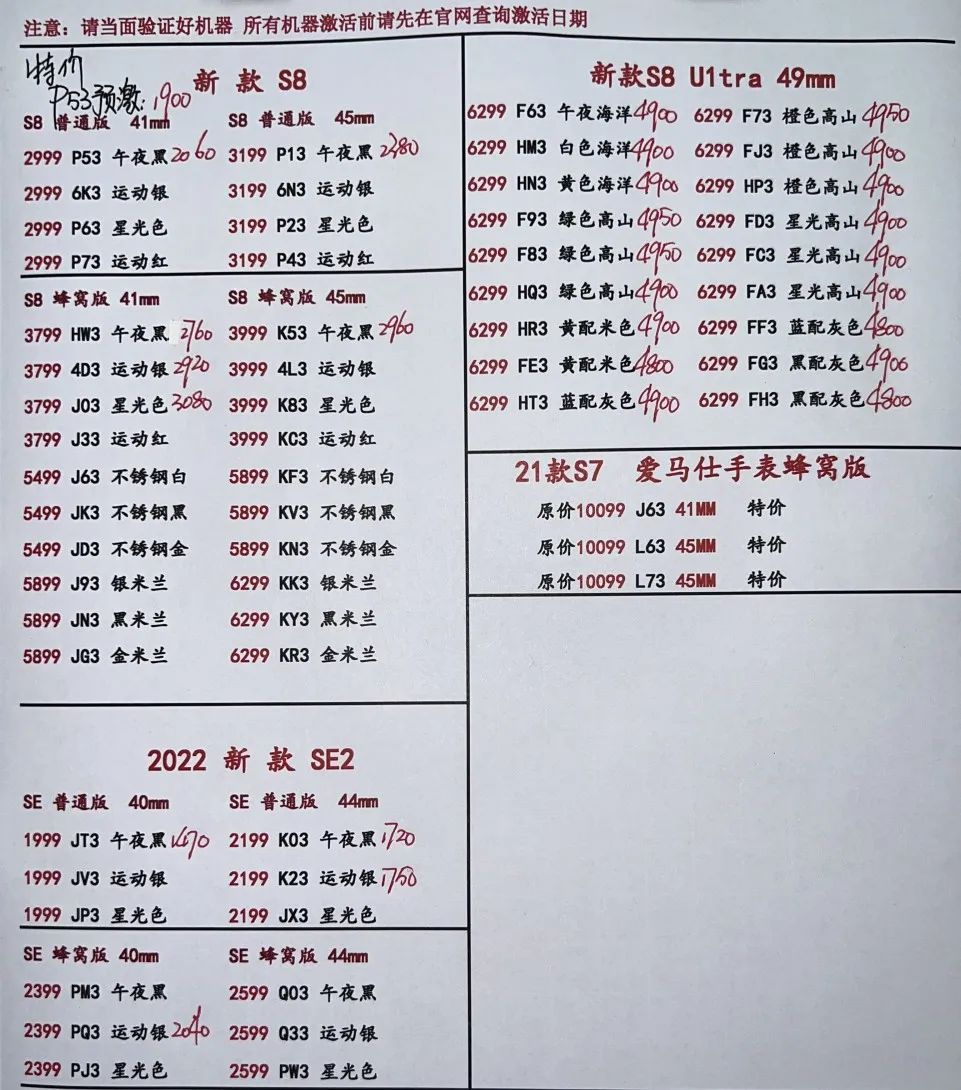 注意：请当面验证好机器 所有机器激活前请先在官网查询激活日期
特价
P53预激:1900
新 款 S8
S8 普通版 41mm S8 普通版 45mm
2999 P53 午夜黑2060 3199 P13 午夜黑2380
2999 6K3 运动银 3199 6N3 运动银
2999 P63 星光色 3199 P23 星光色
2999 P73 运动红 3199 P43 运动红
S8 蜂窝版 41mm S8 蜂窝版 45mm
3799 HW3 午夜黑2760 3999 K53 午夜黑2960
3799 4D3 运动银2920 3999 4L3 运动银
3799 J03 星光色3080 3999 K83 星光色
3799 J33 运动红 3999 KC3 运动红
5499 J63 不锈钢白 5899 KF3 不锈钢白
5499 JK3 不锈钢黑 5899 KV3 不锈钢黑
5499 JD3 不锈钢金 5899 KN3 不锈钢金
5899 J93 银米兰 6299 KK3 银米兰
5899 JN3 黑米兰 6299 KY3 黑米兰
5899 JG3 金米兰 6299 KR3 金米兰
2022 新 款 SE2
SE 普通版 40mm SE 普通版 44mm
1999 JT3 午夜黑1470 2199 K03 午夜黑1720
1999 JV3 运动银 2199 K23 运动银1750
1999 JP3 星光色 2199 JX3 星光色
SE 蜂窝版 40mm SE 蜂窝版 44mm
2399 PM3 午夜黑 2599 Q03 午夜黑
2399 PQ3 运动银2040 2599 Q33 运动银
2399 PJ3 星光色 2599 PW3 星光色
新款S8 U1tra 49mm
6299 F63 午夜海洋4900 6299 F73 橙色高山4950
6299 HM3 白色海洋4900 6299 FJ3 橙色高山4900
6299 HN3 黄色海洋4900 6299 HP3 橙色高山4900
6299 F93 绿色高山4950 6299 FD3 星光高山4900
6299 F83 绿色高山4950 6299 FC3 星光高山4900
6299 HQ3 绿色高山4900 6299 FA3 星光高山4900
6299 HR3 黄配米色4900 6299 FF3 蓝配灰色4800
6299 FE3 黄配米色4800 6299 FG3 黑配灰色4900
6299 HT3 蓝配灰色4900 6299 FH3 黑配灰色4800
21款S7 爱马仕手表蜂窝版
原价10099 J63 41MM 特价
原价10099 L63 45MM 特价
原价10099 L73 45MM 特价